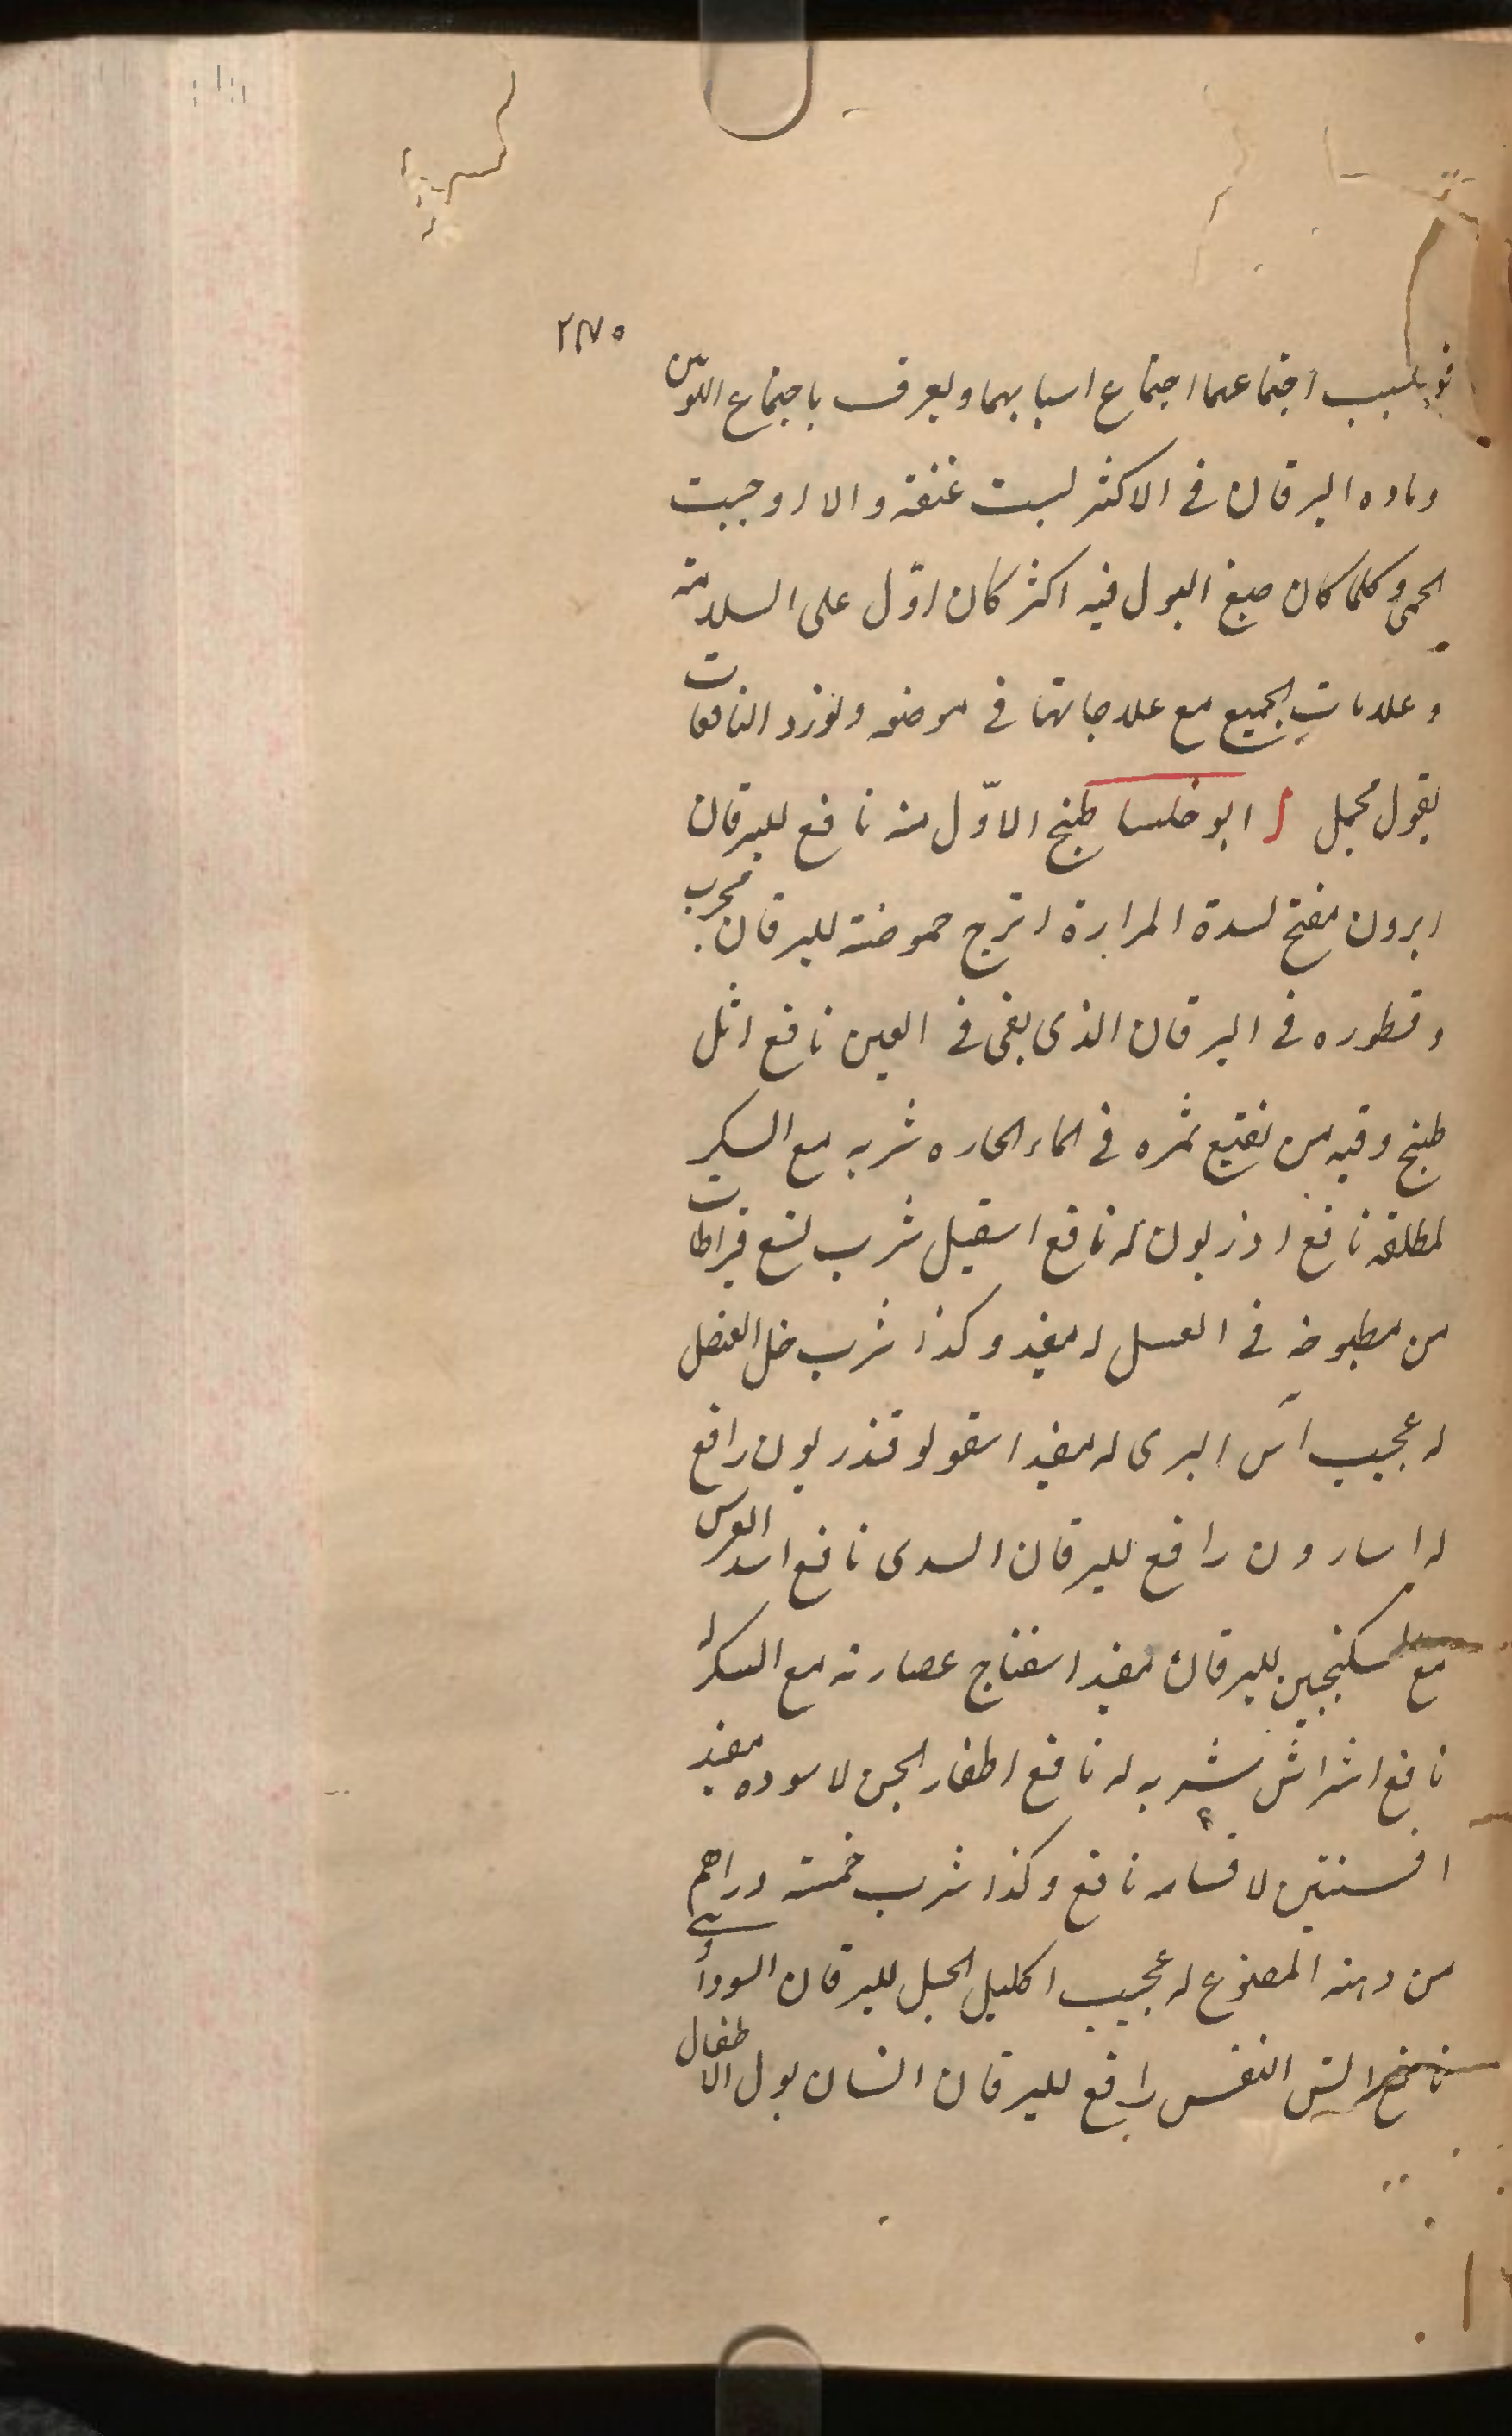 ٢٧٥
بسبب اجتماعهما اجتماع اسبابهما ويعرف باجتماع اللونين
وماده اليرقان فى الاكثر ليست عفنة والا اوجبت
الحمى وكلما كان صبغ البول فيه اكثر كان ادّل على السلامة
وعلامات الجميع مع علاجاتها فى موضعه ولنورد النافعات
بقول مجمل ابو خلسا طبخ الاوّل منه نافع لليرقان
ابرون مفتح لسدة المرارة اترج حموضته لليرقان مجرب
وقطوره فى اليرقان الذى بقى فى العين نافع اثل
طبخ وقيه من نقيع ثمره فى الماء الحاره شربه مع السكر
لمطلقه نافع اذريون له نافع اسقيل شرب تسع قيراطات
من مطبوخه فى العسل له مفيد وكذا شرب خل العنصل
له عجيب آس البرى له مفيد اسقولوقندريون رافع
له اسارون رافع لليرقان السدى نافع اسد العدس
مع سكنجبين لليرقان مفيد اسفناج عصارته مع السكر له
نافع اشراش شربه له نافع اظفار الجن لاسوده مفيد
افسنتين لاقسامه نافع وكذا شرب خمسة دراهم
من دهنه المصنوع له عجيب اكليل الجبل لليرقان السوداوى
نافع النفس رافع لليرقان انسان بول الاطفال